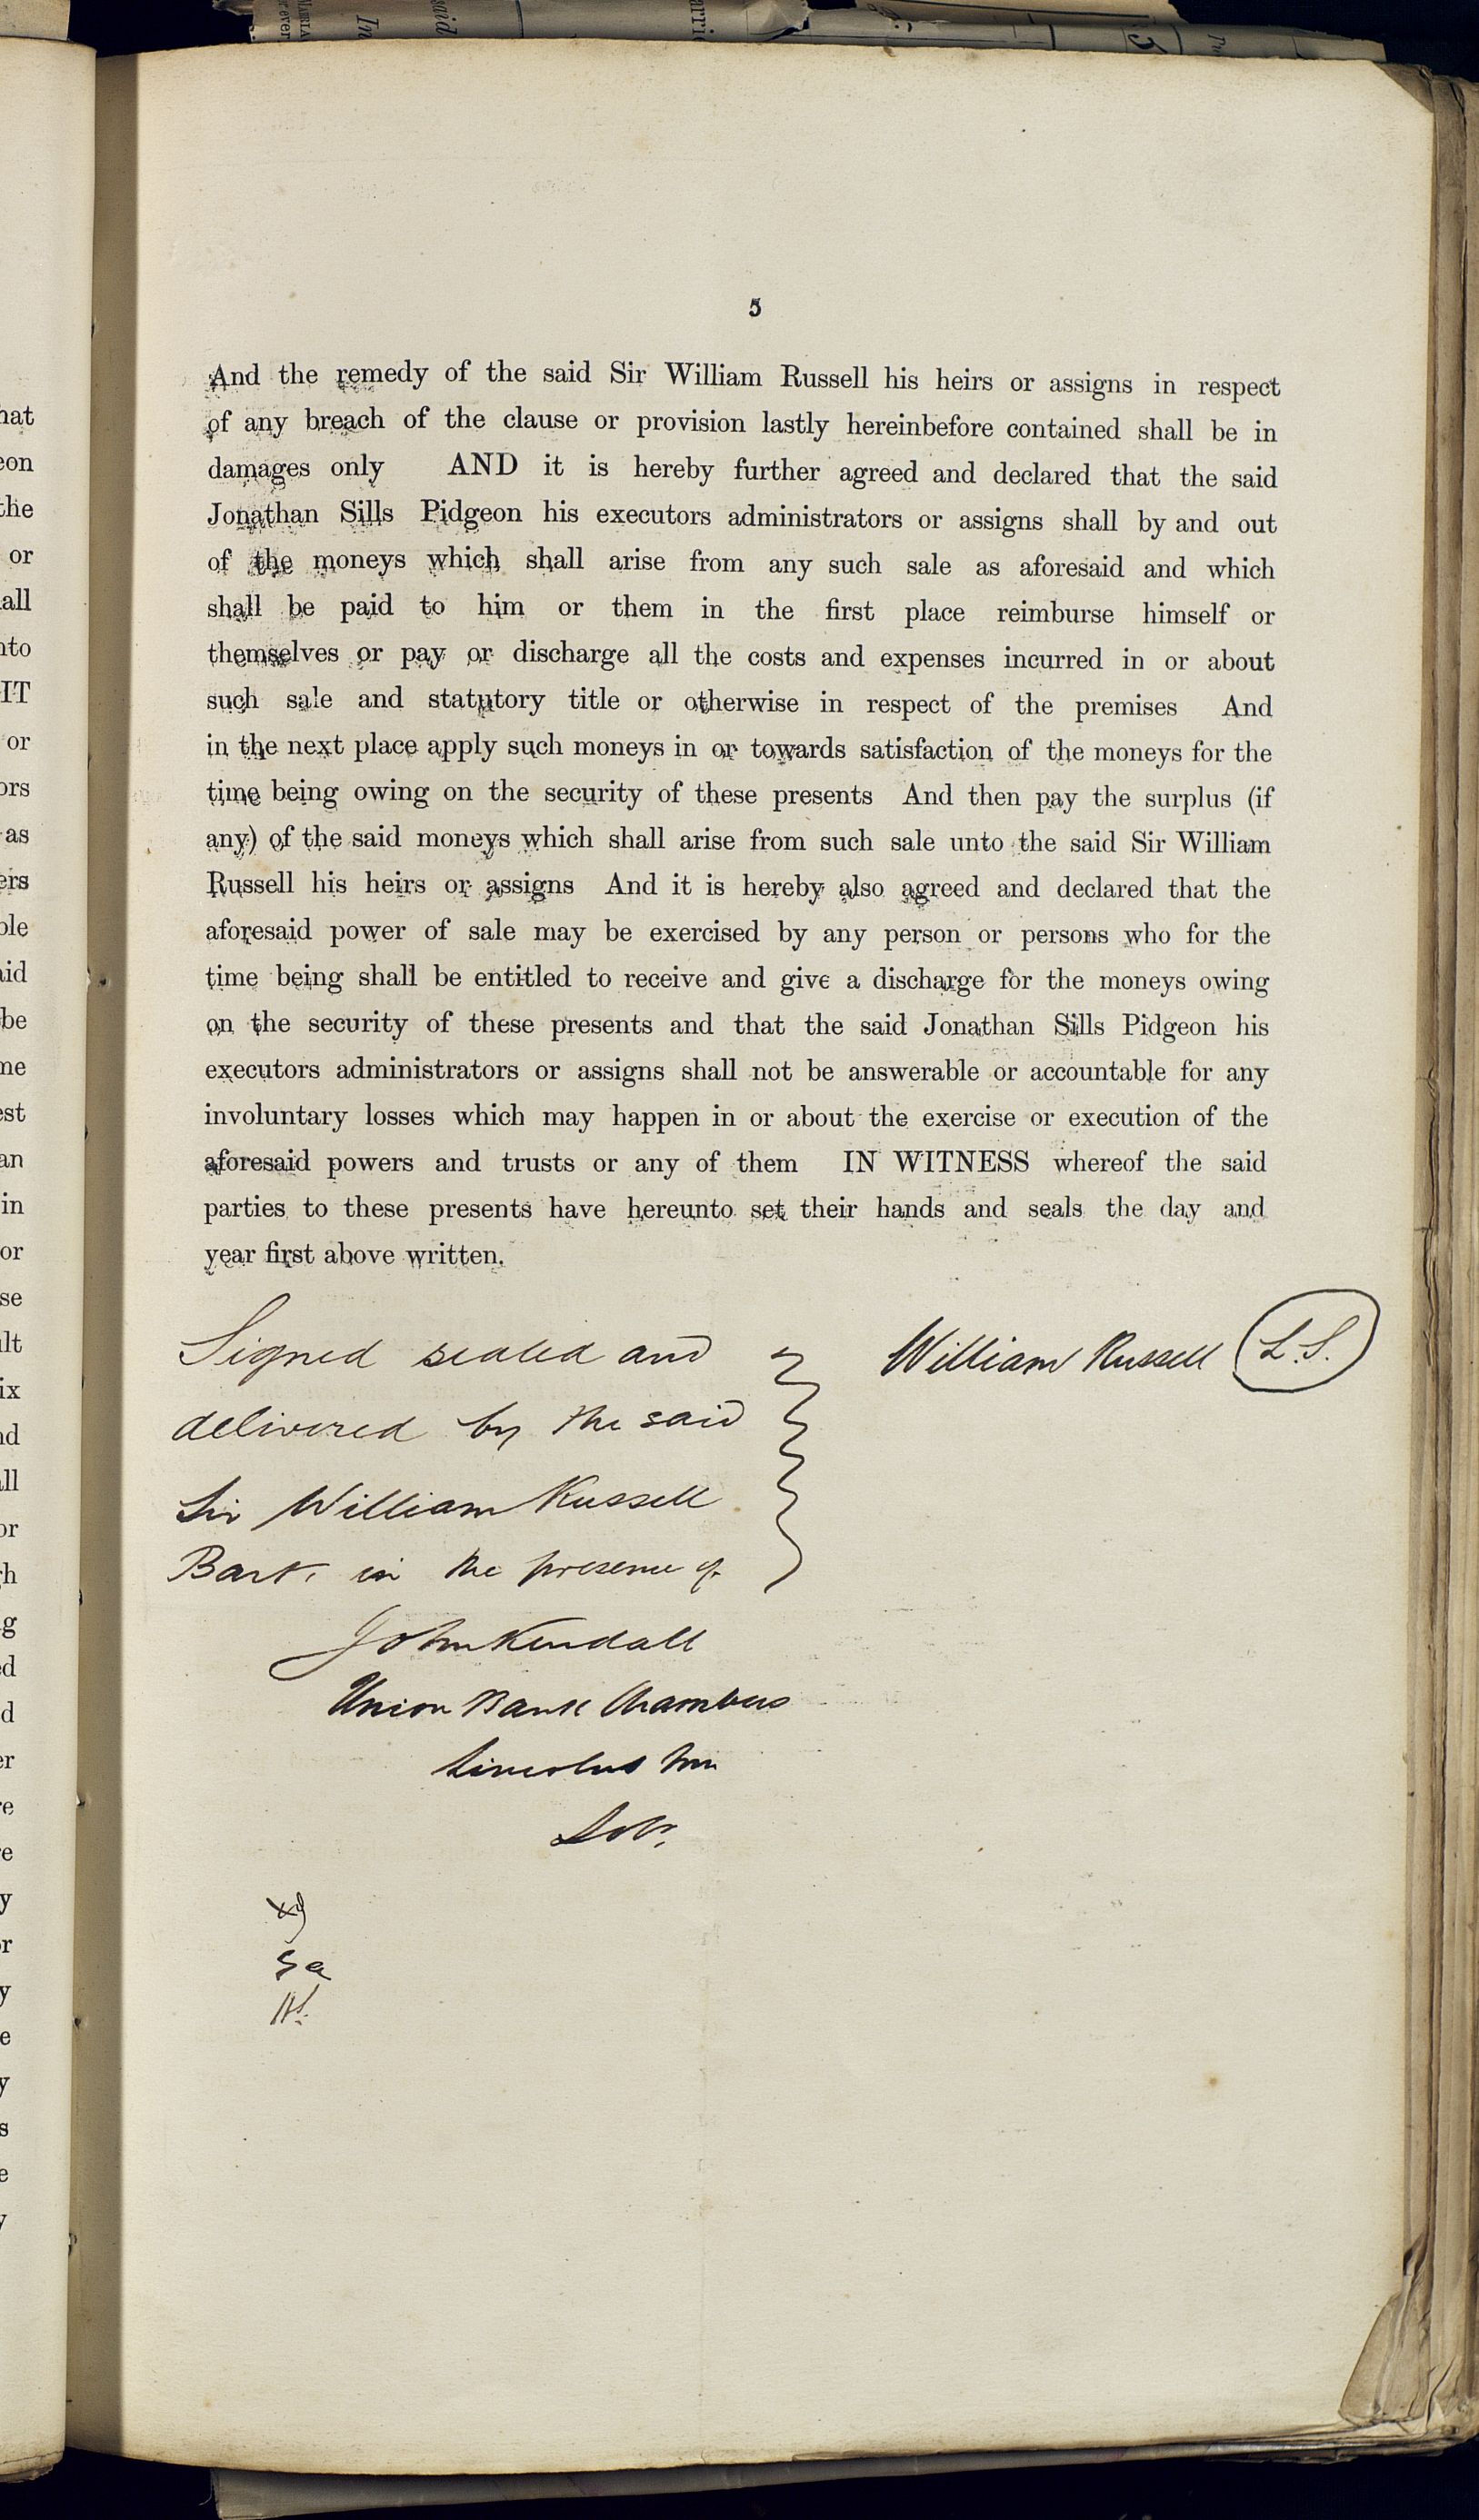 5
And the remedy of the said Sir William Russell his heirs or assigns in respect
of any breach of the clause or provision lastly hereinbefore contained shall be in
damages only AND it is hereby further agreed and declared that the said
Jonathan Sills Pidgeon his executors administrators or assigns shall by and out
of the moneys which shall arise from any such sale as aforesaid and which
shall be paid to him or them in the first place reimburse himself or
themselves or pay or discharge all the costs and expenses incurred in or about
such sale and statutory title or otherwise in respect of the premises And
in the next place apply such moneys in or towards satisfaction of the moneys for the
time being owing on the security of these presents And then pay the surplus (if
any) of the said moneys which shall arise from such sale unto the said Sir William
Russell his heirs or assigns And it is hereby also agreed and declared that the
aforesaid power of sale may be exercised by any person or persons who for the
time being shall be entitled to receive and give a discharge for the moneys owing
on the security of these presents and that the said Jonathan Sills Pidgeon his
executors administrators or assigns shall not be answerable or accountable for any
involuntary losses which may happen in or about the exercise or execution of the
aforesaid powers and trusts or any of them IN WITNESS whereof the said
parties to these presents have hereunto set their hands and seals the day and
year first above written.
Signed sealed and
William Russell L.S.
delivered by the said
Sir William Russell
Bart. in the presence of
John Kendall
Union Bank Chambers
Lincolns Inn
Solr.